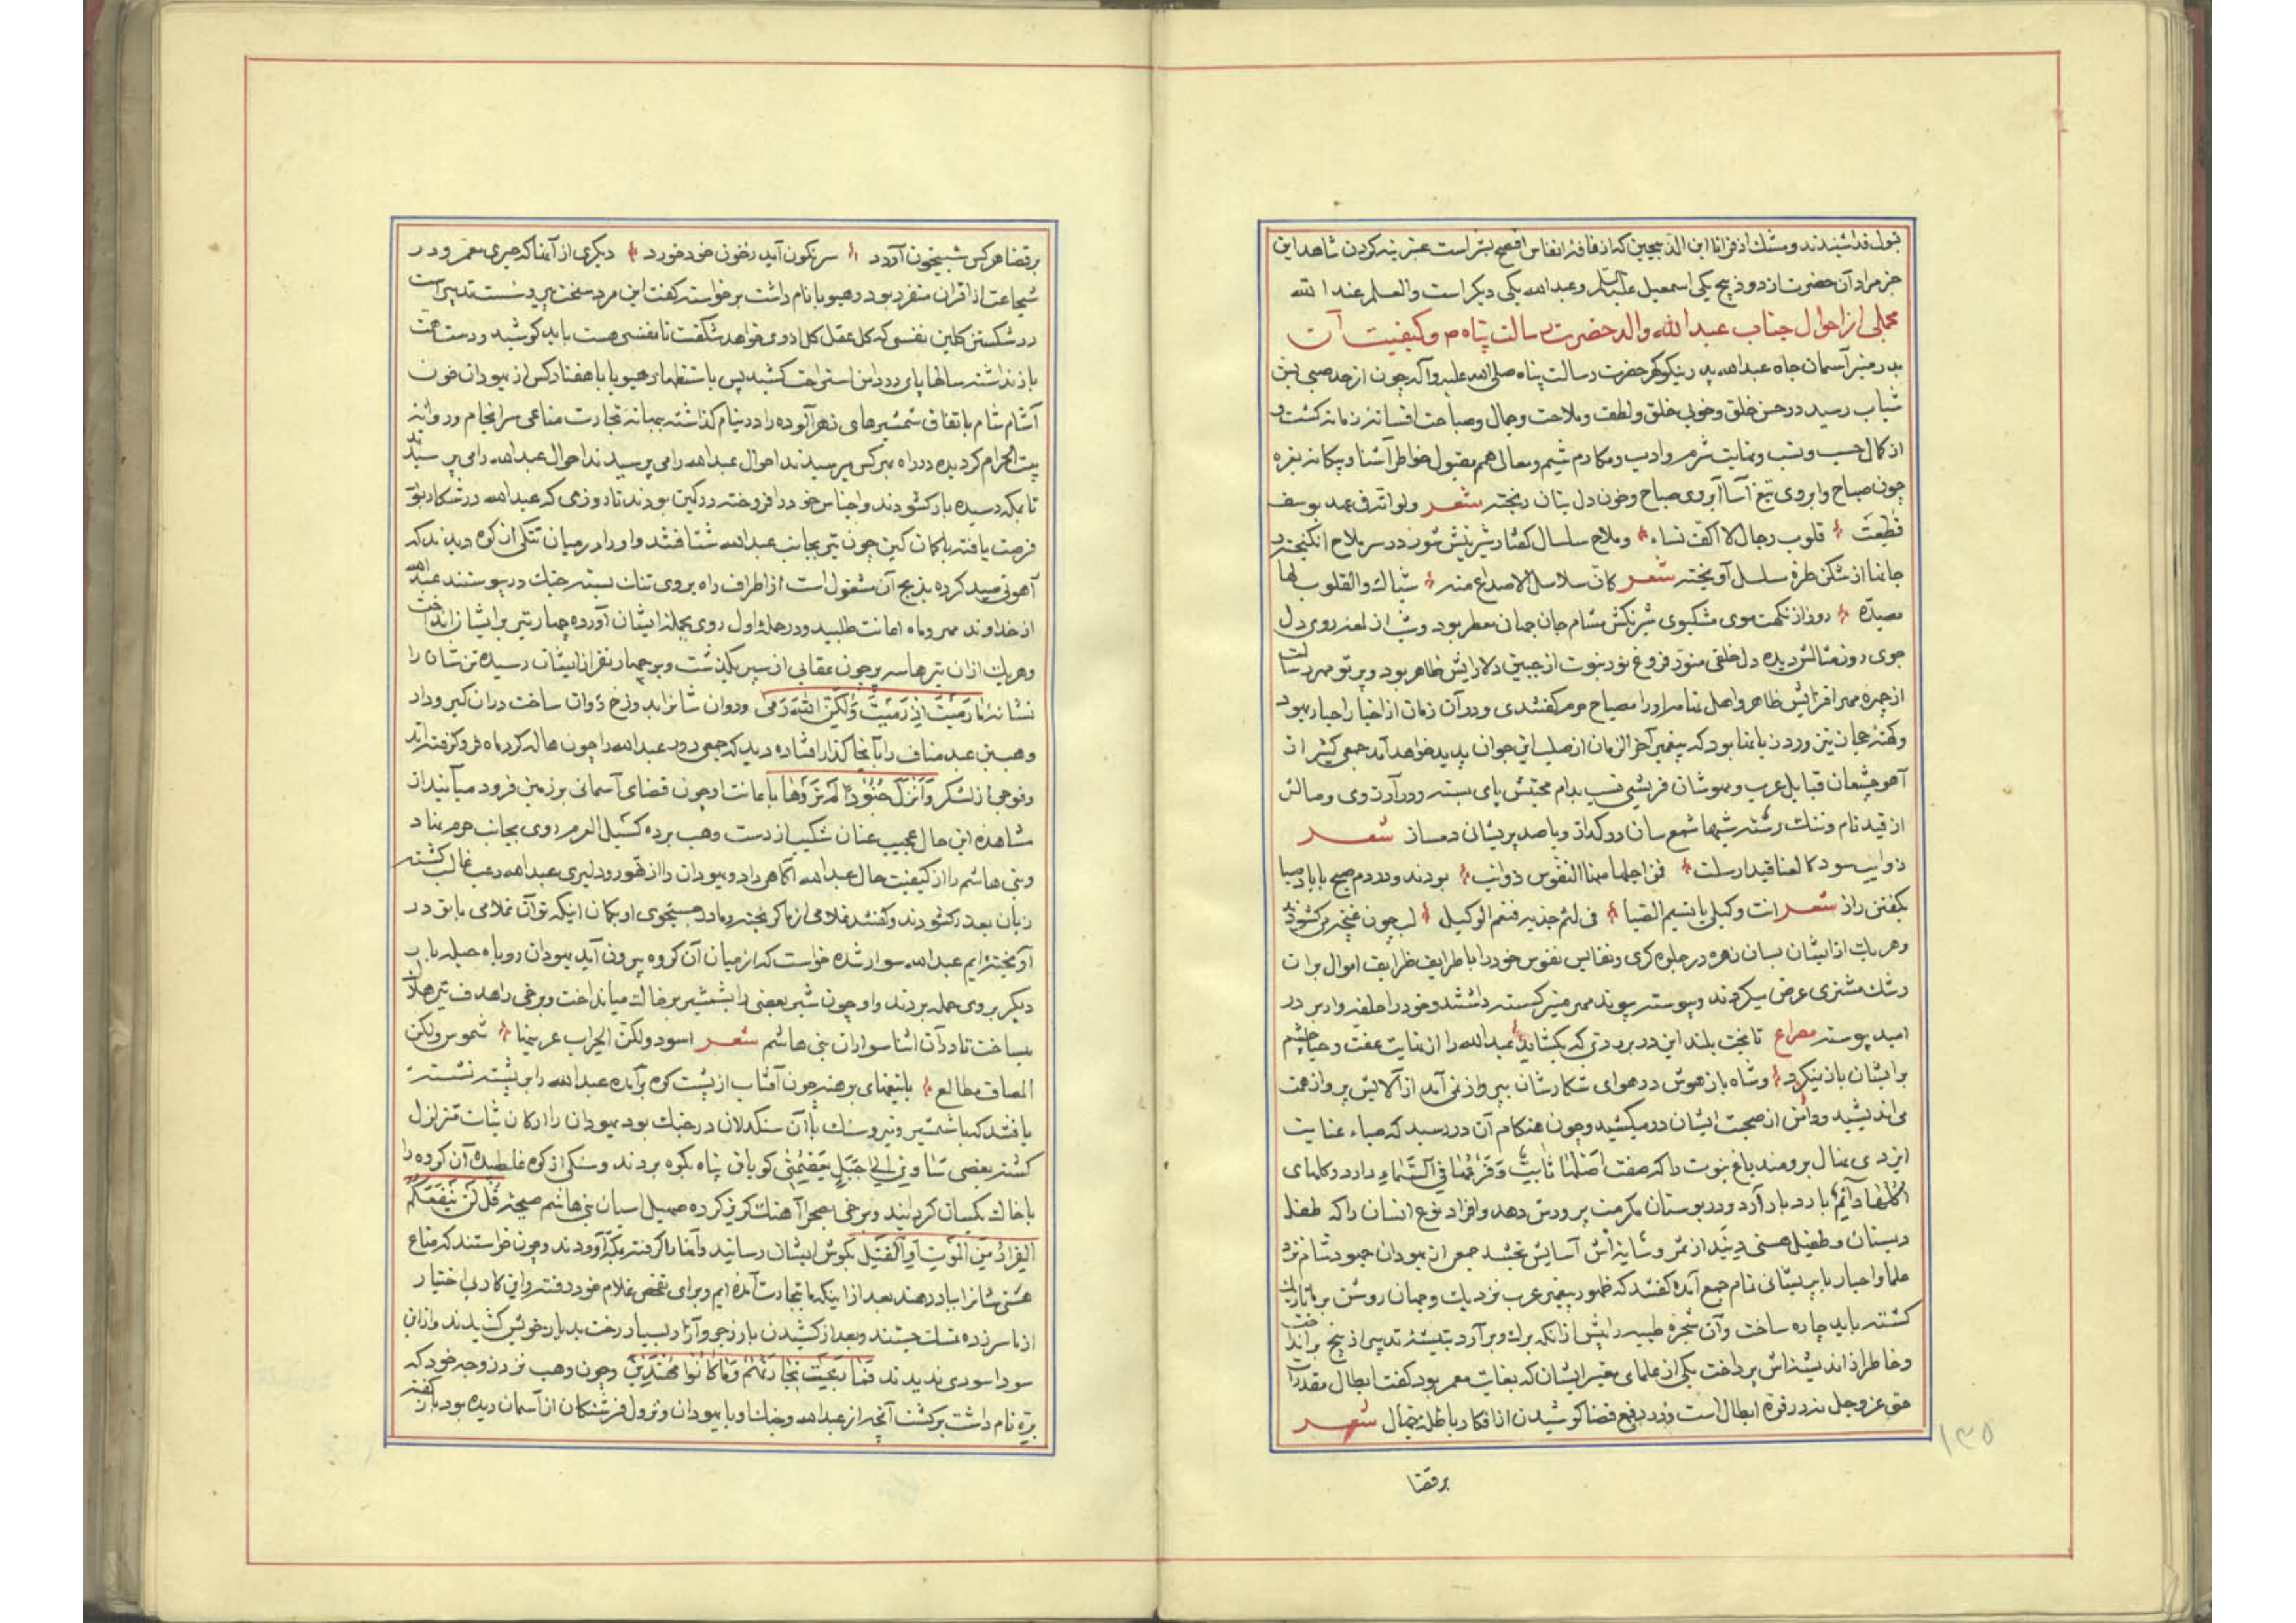 قبول فداشیدند و مشک اذفر انا ابن الذبیحین که از نافهٔ انفاس افصح بشر است عنبرینه کردن شاهد این
خبر مراد آن حضرت از دو ذبیح یکی اسمعیل علیه السلم و عبدالله یکی دیکر است والعلم عند الله
مجملی از احوال جناب عبدالله والد حضرت رسالت پناه ص و کیفیت آن
بدر منیر آسمان جاه عبدالله پدر نیکو کهر حضرت رسالت پناه صلی الله علیه و آله چون از حد صبی بسن
شباب رسید در حسن خلق و خوبی خلق و لطف و ملاحت و جمال و صباحت افسانهٔ زمانه کشت و
از کمال حسب و نسب و نهایت شرم و ادب و مکارم شیم و معالی همم مقبول خواطر آشنا و بیکانه بغره
چون صباح و ابروی تیغ آسا آبروی صباح و خون دل بتان ریخته شعر ولو انه فی عهد یوسف
قطعت قلوب رجال لا اکف نساء و ملاح سلسال کفتار شیرینش شور در سر ملاح انکیخته و
جانها از شکن طرهٔ سلسل آویخته شعر کان سلاسل الاصداغ منه شباک والقلوب لها
مصیده روز از نکهت موی مشکبوی شبرنکش مشام جان جهان معطر بود و شب از لمعه روی دل
جوی روز مثالش دیده دل خلقی منور فروغ نور نبوت از جبین دلارایش ظاهر بود و پرتو مهر رسالت
از چهره مهر افزایش ظاهر و اهل تهامه او را مصباح حرم کفتندی و در آن زمان از اخبار احبار یهود
و کهنهٔ جهان نیز ورد زبانها بود که پیغمبر آخر الزمان از صلب این جوان پدید خواهد آمد جمعی کثیر از
آهو چشمان قبایل عرب و مهوشان قریشی نسب بدام محبتش پای بسته و در آرزوی وصالش
از قید نام و ننک رسته شبها شمع سان در کداز و با صد پریشانی دمساز شعر
ذوایب سود کالعناقید ارسلت فمن اجلها منها النفوس ذوائب بودند و در دم صبح با باد صبا
بکفتن راز شعر انت وکیلی یا نسیم الصبا فی لثم خدیه فنعم الوکیل لب چون غنچه میکشودند
و هر یک از ایشان بسان زهره در جلوه کری و نفایس نفوس خود را با طرایف ظرایف اموال بر ان
رشک مشتری عرض میکردند و پیوسته پیوند مهر میر کسسته داشتند و خود را حلقه وار بر در
امید پیوسته مصراع تا بخت بلند این در بر روی که بکشاید عبدالله را از نهایت عفت و حیا چشم
بر ایشان باز نمیکرد و شاه باز هوش در هوای شکارشان بپرواز نمی آمد از آلایش پرواز همت
می اندیشید و دامن از صحبت ایشان در میکشید و چون هنکام آن در رسید که صباء عنایت
ایزدی نهال برومند باغ نبوت را که صفت اصلها ثابت و فرعها فی السماء دارد و کلهای
اکلها دائم بار دبار آرد و در بوستان مکرمت پرورش دهد و افراد نوع انسان را که طفل
دبستان و طفیل هستی ویند از ثمر و سایه اش آسایش بخشد جمعی از یهودان جهود شام نزد
علما و احبار با پریشانی تمام جمع آمده کفتند که ظهور پیغمبر عرب نزدیک و جهان روشن بر ما تاریک
کشته باید چاره ساخت و آن شجرهٔ طیبه را پیش از انکه برک و بر آرد بتیشهٔ تدبیر از بیخ بر انداخت
و خاطر از اندیشه‌اش پرداخت یکی از علمای معتبر ایشان که بغایت معمر بود کفت ابطال مقدرات
حق عز و جل نه در قوهٔ ابطال است و در دفع قضا کوشیدن از افکار باطله جهال شعر
برقضا
۱۳۵
برقضا هر کس شبیخون آورد سرنکون آید ز خون خود خورد دیکری از آنها که حبری معمر و در
شجاعت از اقران متفرد بود و هیوبا نام داشت برخواسته کفت این مرد سخت پیر و سست تدبیر است
در شکستن کلبن نفسی که کل عقل کل از وی خواهد شکفت تا نفسی هست باید کوشید و دست همت
باز نداشته سالها پای در دامن استراحت کشید پس باستظهار هیوبا با هفتاد کس از یهودان خون
آشام شام باتفاق شمشیرهای زهر آلوده را در نیام کذاشته ببهانهٔ تجارت متاعی سرانجام و روانهٔ
بیت الحرام کردیده در راه بهر کس میرسیدند احوال عبدالله را می پرسیدند
تا بمکه رسیده بار کشودند و اجناس خود را فروخته در کمین بودند تا روزی که عبدالله در شکار بود
فرصت یافته با کمان کین چون تیر بجانب عبدالله شتافتند و او را در میان تنکی از کوه دیدند که
آهوئی صید کرده بذبح آن مشغول است از اطراف راه بر وی تنک بسته بجنک در پیوستند عبدالله
از خداوند مهر و ماه اعانت طلبید و در حملهٔ اول روی بحملهٔ ایشان آورده چهار تیر بر ایشان انداخت
و هر یک از ان تیرها سه پر چون عقابی از سپر بکذشت و بر چهار نفر از ایشان رسیده تن شان را
نشانهٔ ما رمیت اذ رمیت ولکن الله رمی و روان شانرا بدوزخ روان ساخت در ان کیر و دار
وهب بن عبد مناف را بآنجا کذار افتاده دید که جمعی دور عبدالله را چون هاله کرد ماه فرو کرفته اند
و فوجی از لشکر و انزل جنودا لم تروها باعانت او چون قضای آسمانی بر زمین فرود میآیند از
مشاهده این حال عجیب عنان شکیب از دست وهب برده کسیل العرم روی بجانب حرم نهاد
و بنی هاشم را از کیفیت حال عبدالله آکاهی داد و یهودان را از تهور و دلیری عبدالله رعب غالب کشته
زبان بعذر کشودند و کفتند غلامی از ما کریخته و ما در جستجوی او بکمان اینکه تو آن غلامی با تو در
آویخته‌ایم عبدالله سوار شده خواست که از میان آن کروه بیرون آید یهودان روباه حیله بار
دیکر بر وی حمله بردند و او چون شیر بعضی را بشمشیر بر خاک میانداخت و برخی را هدف تیر هلاک
میساخت تا در آن اثنا سواران بنی هاشم شعر اسود ولکن الحراب عرینها شموس ولکن
المصاف مطالع با تیغهای برهنه چون آفتاب از پشت کوه برآمده عبدالله را بر پشته نشسته
یافتند که با شمشیر و تیر و سنک با آن سنکدلان در جنک بود یهودان را ارکان ثبات متزلزل
کشته بعضی سآوی الی جبل یعصمنی کویان پناه بکوه بردند و سنکی از کوه غلطیده آن کروه را
با خاک یکسان کردانید و برخی بصحرا آهنک کریز کرده صهیل اسبان بنی هاشم صیحهٔ قل لن ینفعکم
الفرار من الموت او القتل بکوش ایشان رسانید و آنها را کرفته بمکه آوردند و چون خواستند که متاع
هستی شانرا بباد دهند بعد از اینکه ما بتجارت آمده ایم و برای تفحص غلام خود رفته و این کار بی اختیار
از ما سر زده متمسک جستند و بعد از کشیدن بار زجر و آزار بسیار رخت بدیار خویش کشیدند و از این
سودا سودی ندیدند فما ربحت تجارتهم و ما کانوا مهتدین و چون وهب نزد زوجه خود که
بره نام داشت برکشت آنچه از عبدالله و جنک او با یهودان و نزول فرشتکان از آسمان دیده بود باز کفته